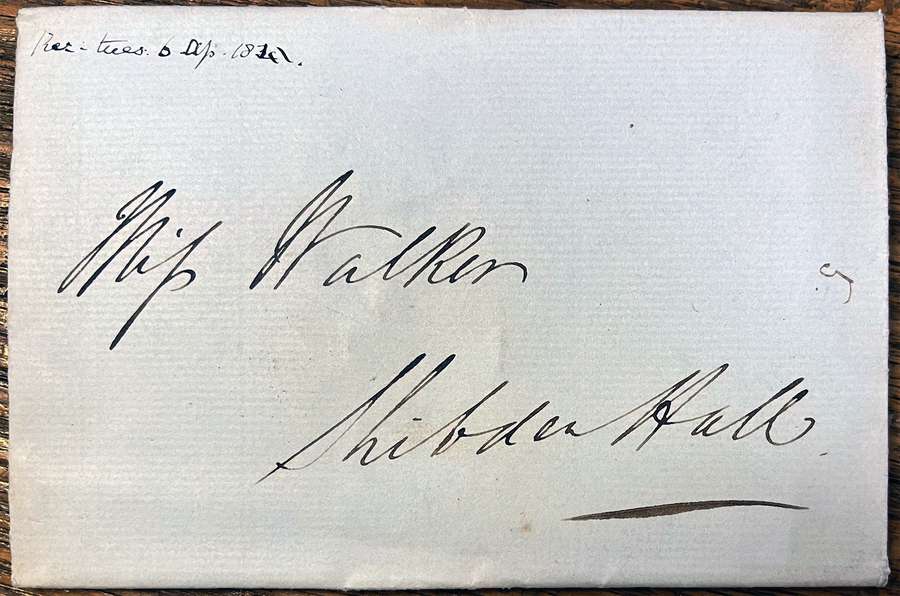 Rec- tues. 6 Ap. 1841.
Miſs Walker
Shibden Hall